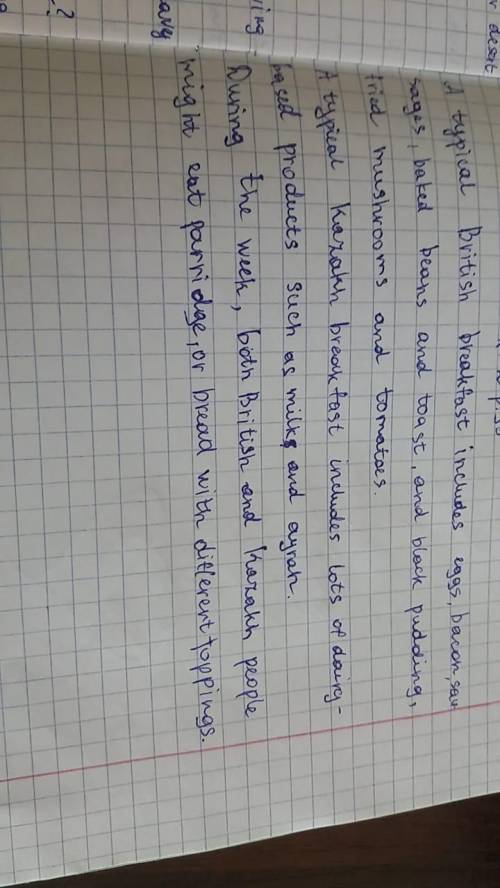 A typical British breakfast includes eggs, bacon, sau
sages, baked beans and toast, and black pudding,
fried mushrooms and tomatoes.
A typical Kazakh breakfast includes lots of dairy-
based products such as milk, and ayran.
During the week, both British and Kazakh people
might eat parridge, or bread with different toppings.